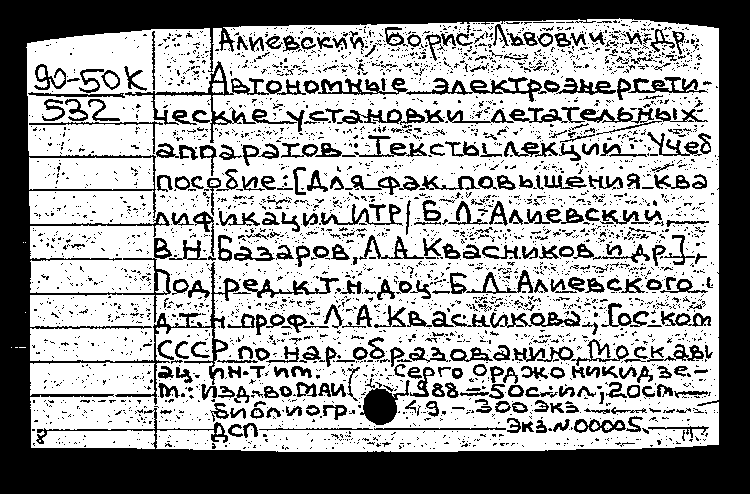 Алиевский, Борис Львович и др.
90-50К
532
Автономные электроэнергети-
ческие установки летательных
аппаратов: Тексты лекций: Учеб
пособие: [Для фак. повышения ква
лификации ИТР / Б.Л. Алиевский,
В.Н. Базаров, Л.А. Квасников и др.];
Под ред. к.т.н. доц. Б.Л. Алиевского
д.т.н. проф. Л.А. Квасникова; Гос. ком
СССР по нар. образованию, Моск. ави
ац. ин-т им. Серго Орджоникидзе.-
М.: Изд-во МАИ 1988.-50с.: ил.; 20см.
Библиогр. 49.- 300 экз
ДСП. Экз. N 00005.
8